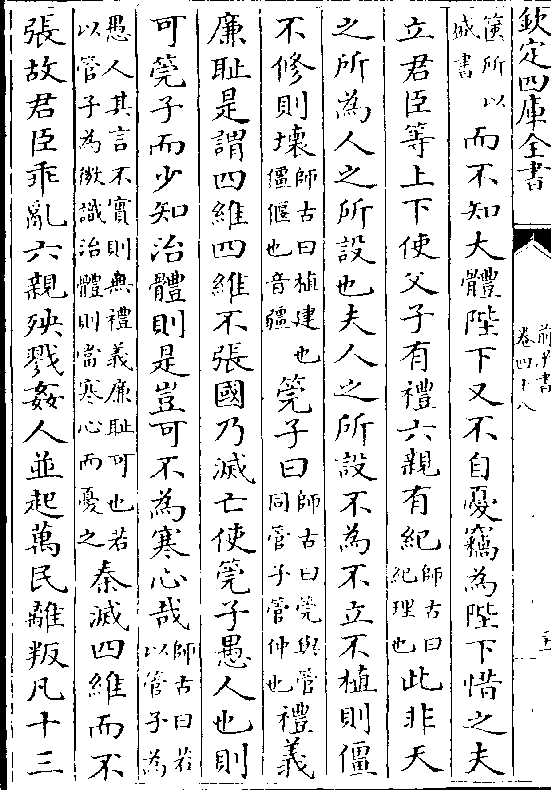 欽定四庫全書
前漢書
卷四十八
筐所以
城書
而不知大體陛下又不自憂竊為陛下惜之夫
立君臣等上下使父子有禮六親有紀師古曰
紀理也
此非天
之所為人之所設也夫人之所設不為不立不植則僵
不修則壞師古曰植建也
僵偃也音疆
筦子曰師古曰筦與管
同管子管仲也
禮義
廉耻是謂四維四維不張國乃滅亡使筦子愚人也則
可筦子而少知治體則是豈可不為寒心哉師古曰若
以管子為
愚人其言不實則無禮義廉耻可也若
以管子為微識治體則當寒心而憂之
秦滅四維而不
張故君臣乖亂六親殃戮姦人並起萬民離叛凡十三